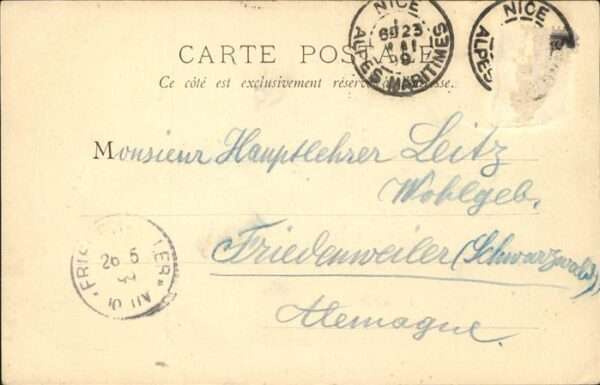 NICE
ALPES MARITIMES
23
NICE
ALPES
CARTE POSTALE
Ce côté est exclusivement réservé
Monsieur Hauptlehrer Leitz
Wohlgeb.
Friedenweiler (Schwarzwald)
Alemagne.
26 5